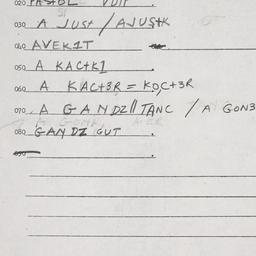 020 PASTOL VUIT
030 A JUST / AJUSTK
040 AVEK1T
050 A KACTK1
060 A KACT3R = KOCT3R
070 A GANDZ // TANC / A GON3
080 GANDZ GUT
090